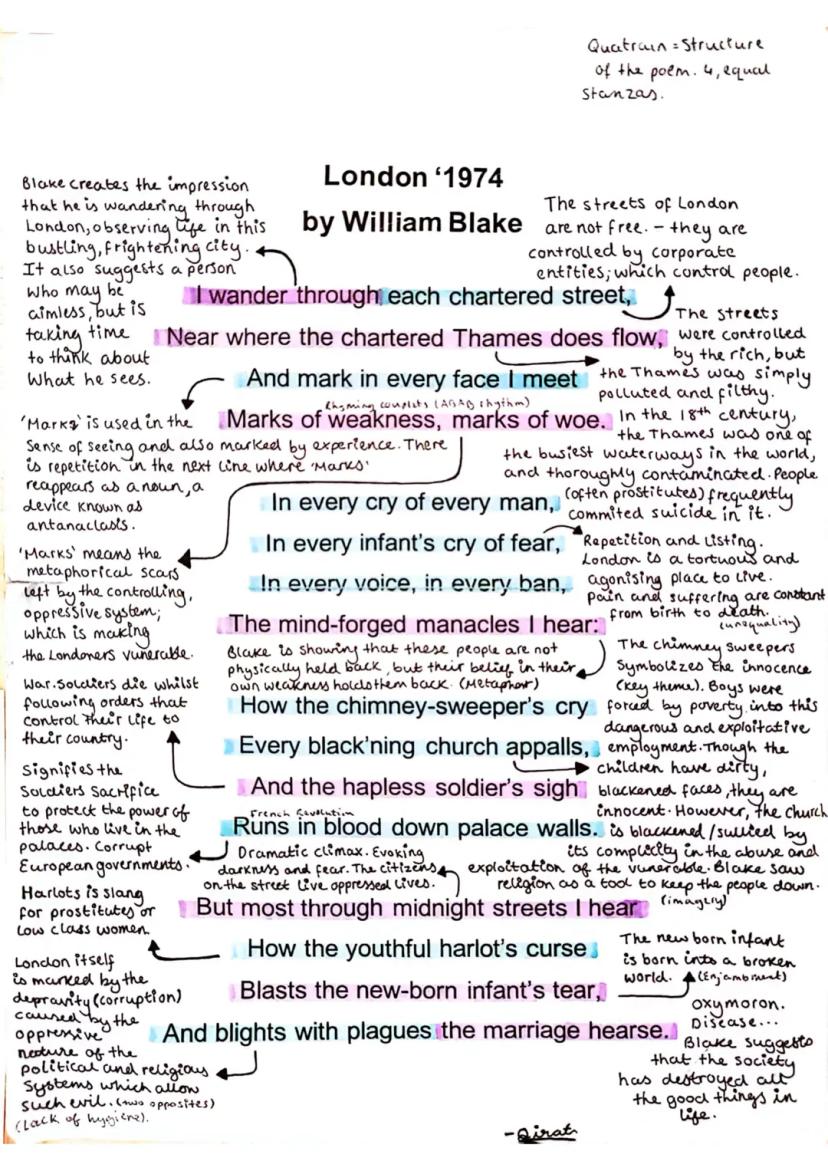 Quatrain = Structure
of the poem. 4, equal
Stanzas.
London ‘1974
by William Blake
Blake creates the impression
that he is wandering through
London, observing life in this
bustling, frightening city.
It also suggests a person
who may be
aimless, but is
taking time
to think about
what he sees.
The streets of London
are not free. - they are
controlled by corporate
entities; which control people.
I wander through each chartered street,
The streets
were controlled
by the rich, but
the Thames was simply
polluted and filthy.
Near where the chartered Thames does flow,
And mark in every face I meet
Rhyming couplets (ABAB rhythm)
Marks of weakness, marks of woe.
In the 18th century,
the Thames was one of
the busiest waterways in the world,
and thoroughly contaminated. People
(often prostitutes) frequently
commited suicide in it.
'Marks' is used in the
sense of seeing and also marked by experience. There
is repetition in the next line where 'Marks'
reappears as a noun, a
device known as
antanaclasis.
In every cry of every man,
In every infant's cry of fear,
Repetition and Listing.
London is a tortuous and
agonising place to live.
Pain and suffering are constant
from birth to death.
(inequality)
'Marks' means the
metaphorical scars
left by the controlling,
oppressive system;
which is making
the Londoners vunerable.
In every voice, in every ban,
The mind-forged manacles I hear:
Blake is showing that these people are not
physically held back, but their belief in their
own weakness holds them back. (Metaphor)
The chimney sweepers
symbolizes the innocence
(key theme). Boys were
forced by poverty into this
dangerous and exploitative
employment. Though the
children have dirty,
blackened faces, they are
innocent. However, the church
is blackened/sullied by
its complicity in the abuse and
exploitation of the vunerable. Blake saw
religion as a tool to keep the people down.
(imagery)
How the chimney-sweeper's cry
Every black'ning church appalls,
War. Soldiers die whilst
following orders that
control their life to
their country.
And the hapless soldier's sigh
French Revolution
Runs in blood down palace walls.
Signifies the
Soldiers sacrifice
to protect the power of
those who live in the
palaces. Corrupt
European governments.
Dramatic climax. Evoking
darkness and fear. The citizens
on the street live oppressed lives.
But most through midnight streets I hear
Harlots is slang
for prostitutes or
low class women.
How the youthful harlot's curse
Blasts the new-born infant's tear,
The new born infant
is born into a broken
world.
(Enjambment)
And blights with plagues the marriage hearse.
London itself
is marked by the
depravity (corruption)
caused by the
oppressive
nature of the
political and religious
systems which allow
such evil. (two opposites)
(Lack of hygiene).
oxymoron.
Disease...
Blake suggests
that the society
has destroyed all
the good things in
life.
-Qirat